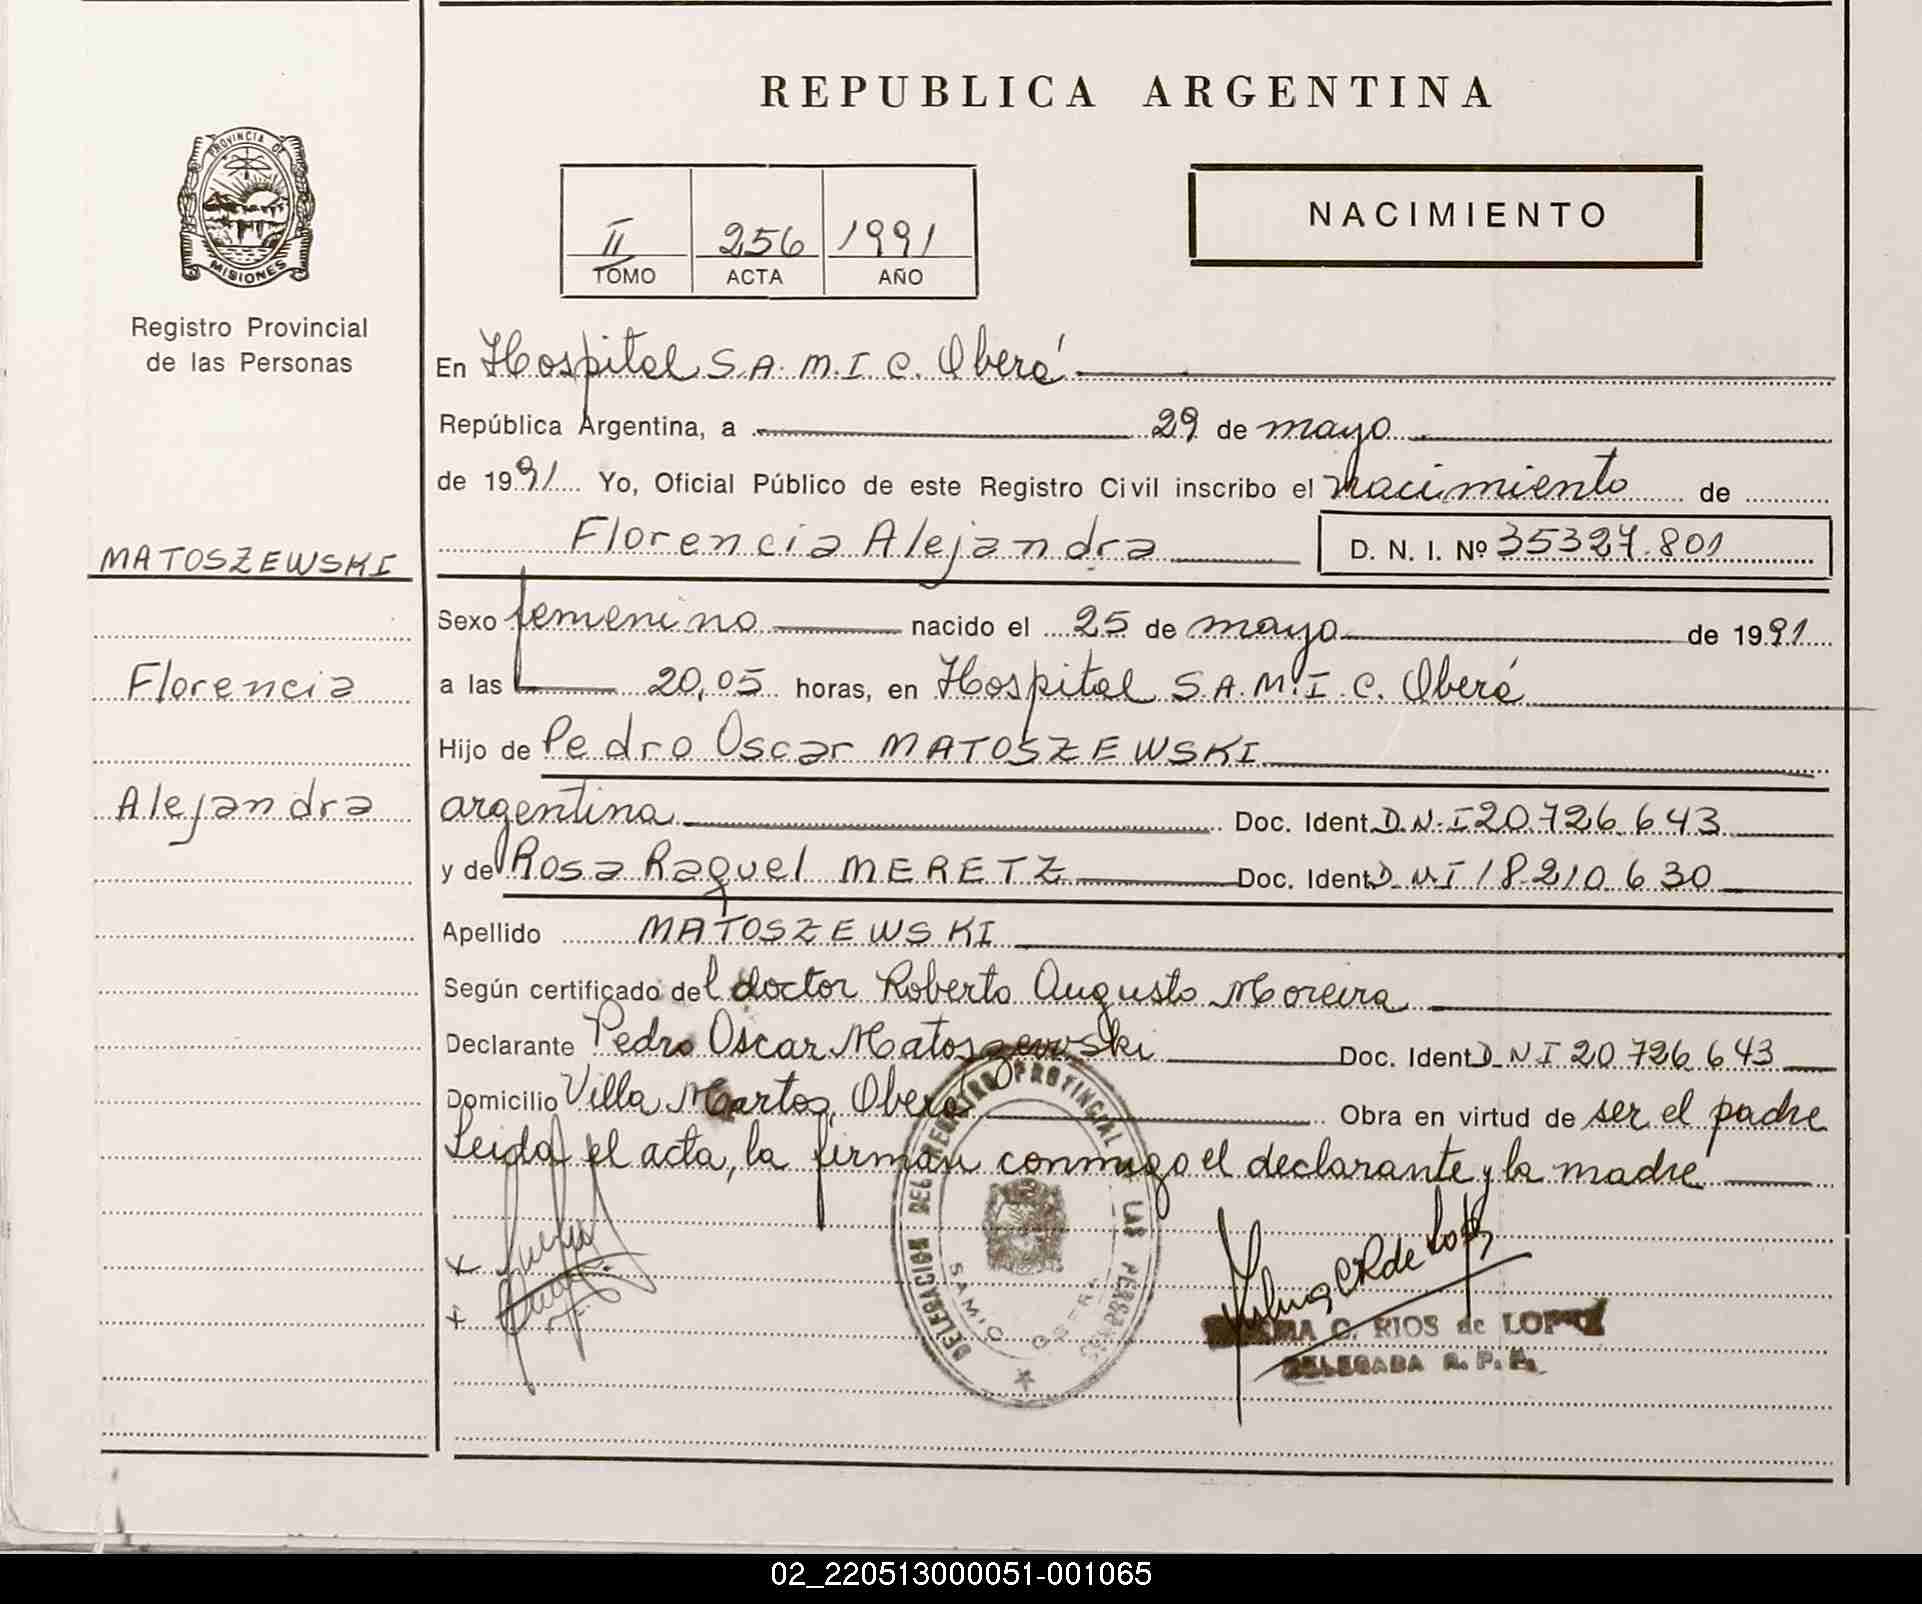 REPUBLICA ARGENTINA
PROVINCIA DE
MISIONES
Registro Provincial
de las Personas
II 256 1991
TOMO ACTA AÑO
NACIMIENTO
En Hospital S.A.M.I.C. Oberá
República Argentina, a 29 de mayo
de 1991 Yo, Oficial Público de este Registro Civil inscribo el nacimiento de
Florencia Alejandra D. N. I. Nº 35327.801
MATOSZEWSKI
Florencia
Alejandra
Sexo femenino nacido el 25 de mayo de 1991
a las 20,05 horas, en Hospital S.A.M.I.C. Oberá
Hijo de Pedro Oscar MATOSZEWSKI
argentina Doc. Ident. D.N.I 20.726.643
y de Rosa Raquel MERETZ Doc. Ident. D.N.I 18.210.630
Apellido MATOSZEWSKI
Según certificado del doctor Roberto Augusto Moreira
Declarante Pedro Oscar Matoszewski Doc. Ident. D.N.I 20 726 643
Domicilio Villa Martos, Oberá Obra en virtud de ser el padre
Leida el acta, la firman conmigo el declarante y la madre
DELEGACION DEL REGISTRO PROVINCIAL LAS PERSONAS
SAMIC OBERA
C. RIOS de LOPEZ
DELEGADA R. P. P.
02_220513000051-001065